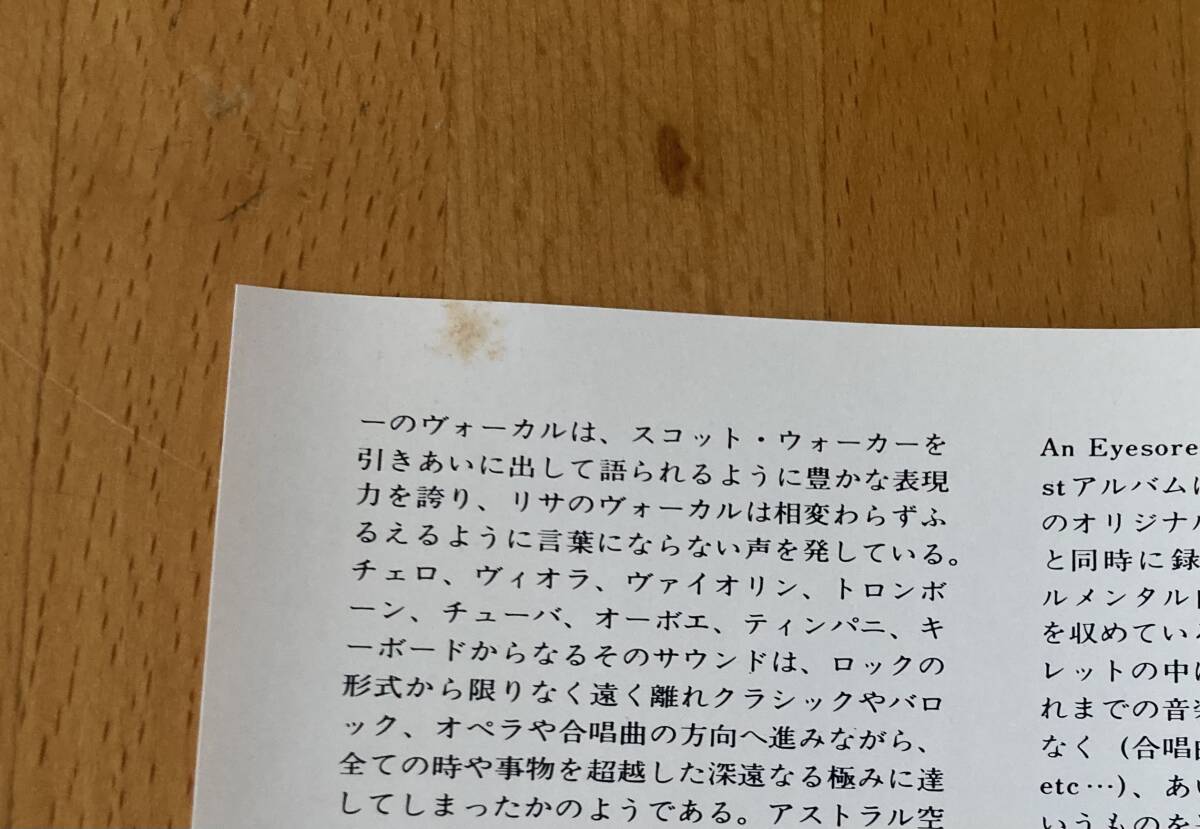 ーのヴォーカルは、スコット・ウォーカーを
引きあいに出して語られるように豊かな表現
力を誇り、リサのヴォーカルは相変わらずふ
るえるように言葉にならない声を発している。
チェロ、ヴィオラ、ヴァイオリン、トロンボ
ーン、チューバ、オーボエ、ティンパニ、キ
ーボードからなるそのサウンドは、ロックの
形式から限りなく遠く離れクラシックやバロ
ック、オペラや合唱曲の方向へ進みながら、
全ての時や事物を超越した深遠なる極みに達
してしまったかのようである。アストラル空
An Eyesore
stアルバムに
のオリジナル
と同時に録
ルメンタル
を収めている
レットの中に
れまでの音楽
なく（合唱曲
etc…)、あい
いうものを